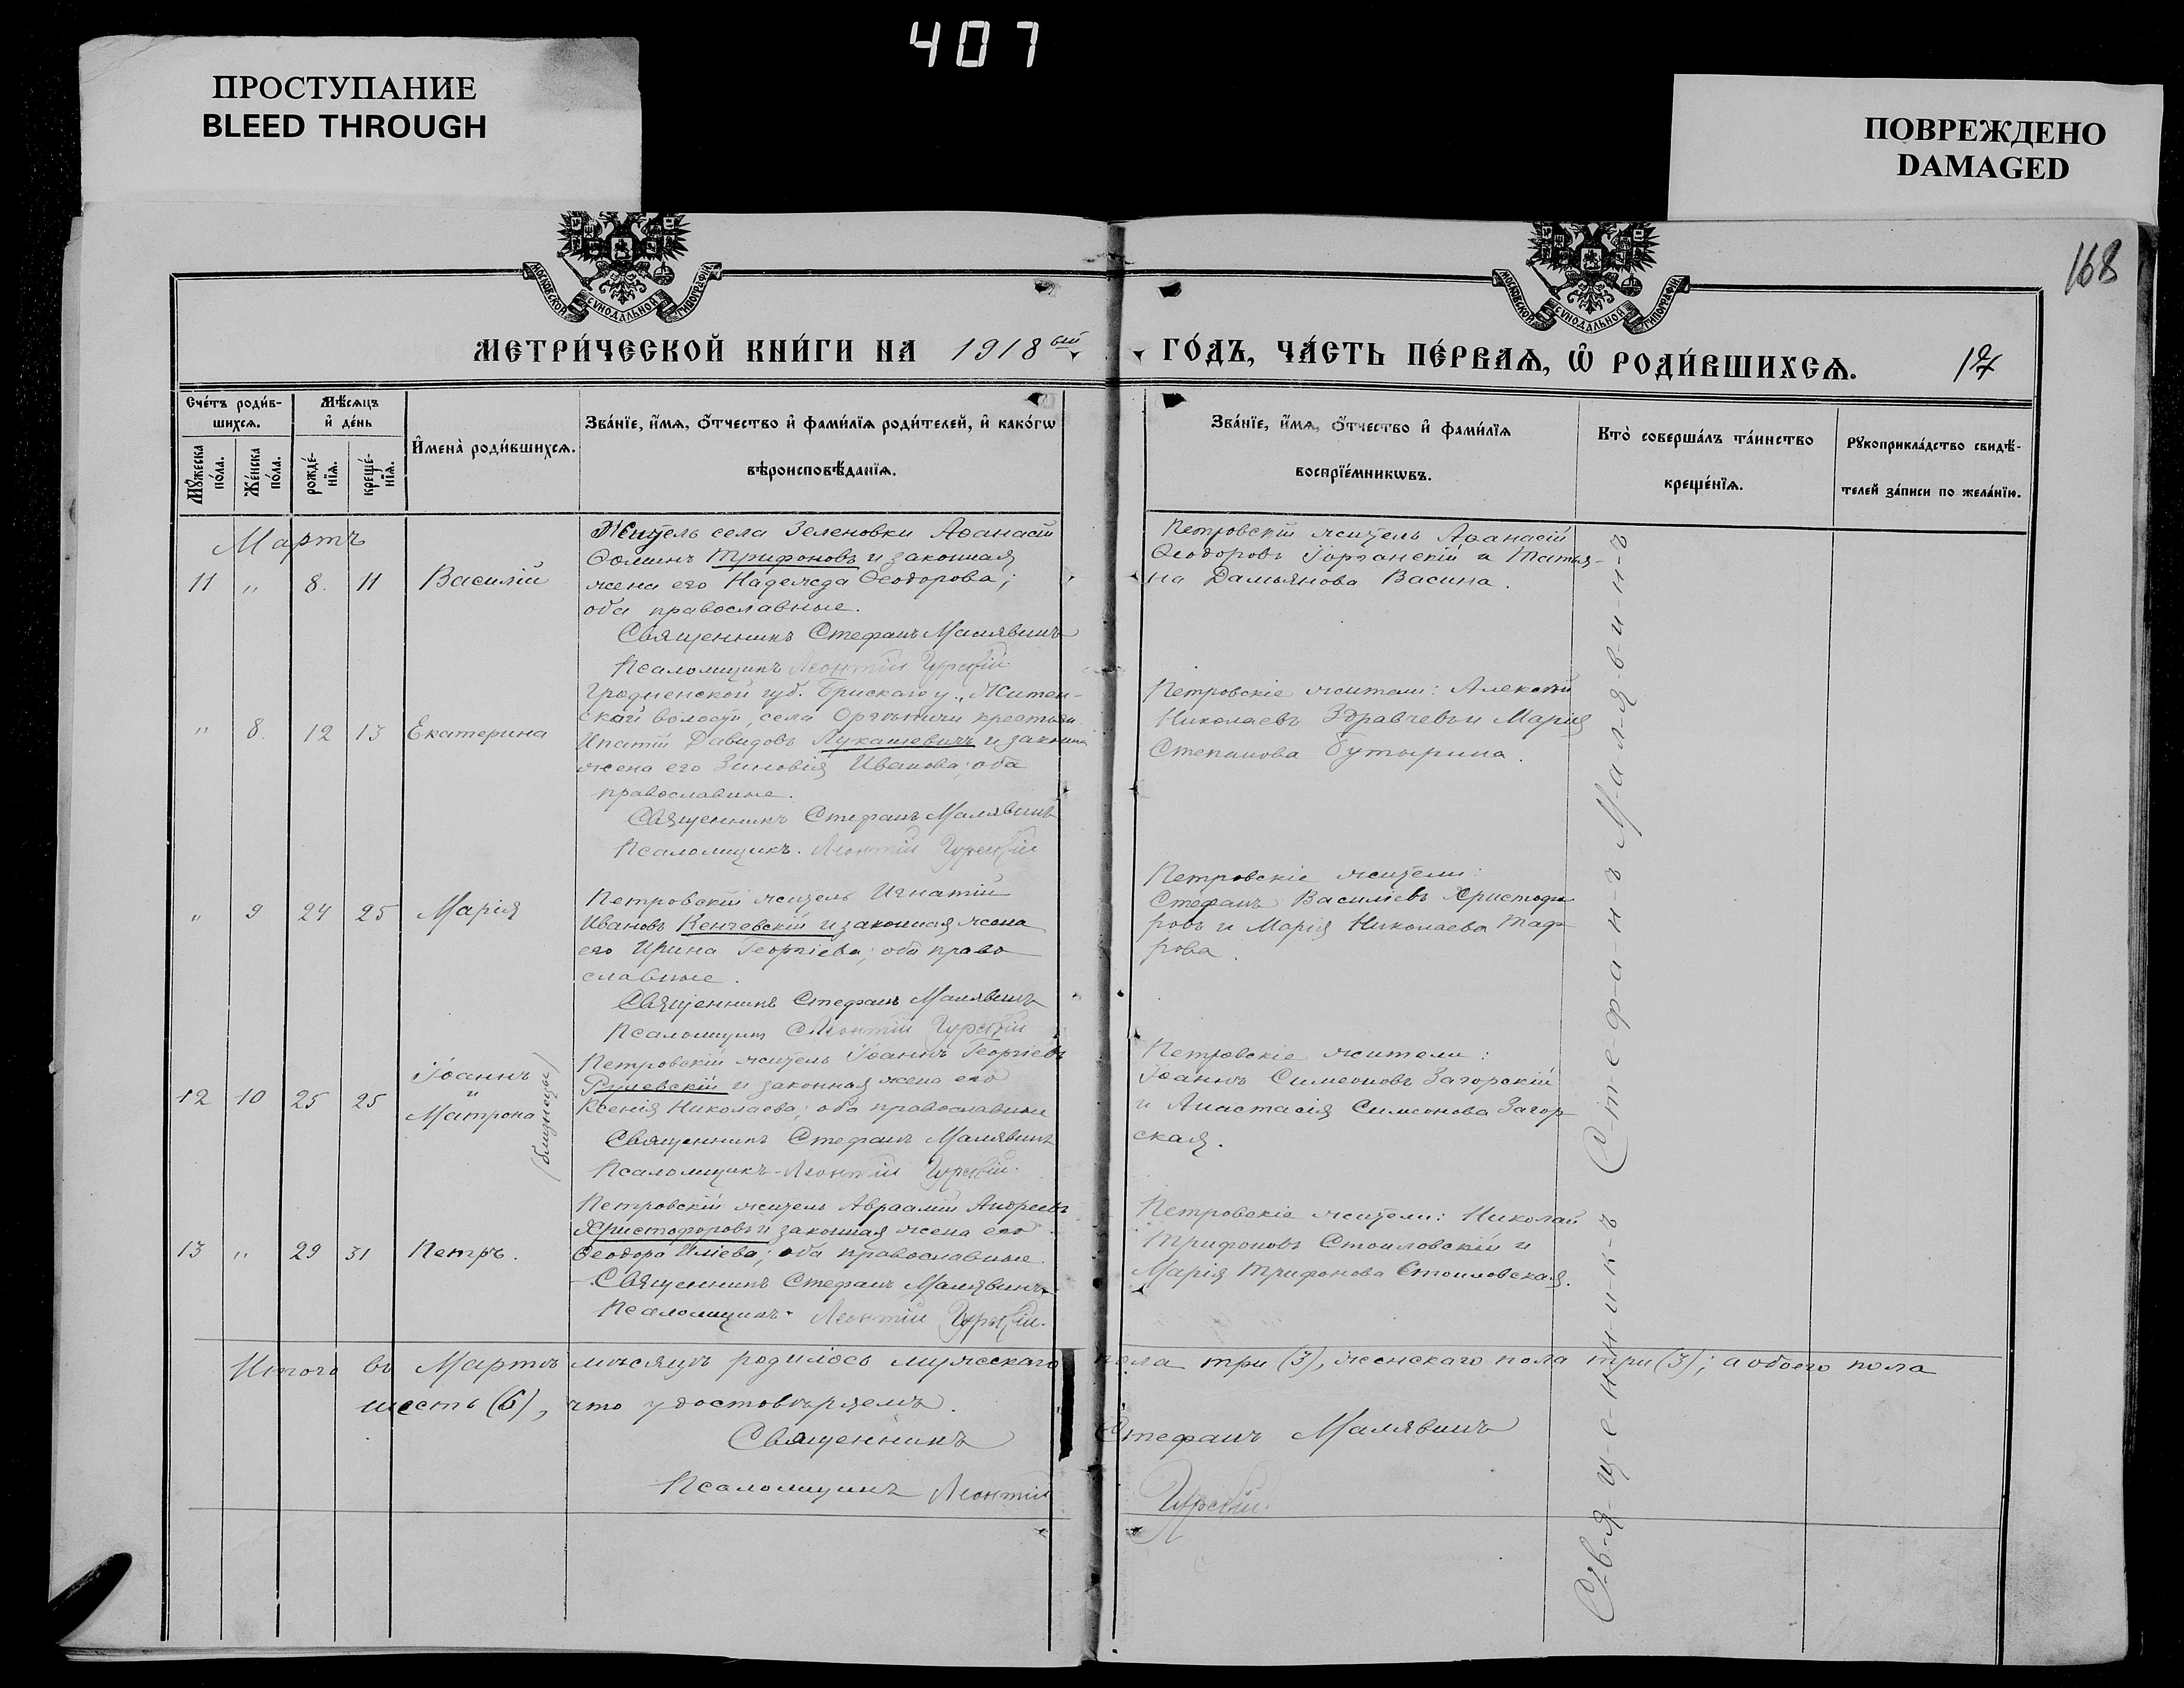 407
ПРОСТУПАНИЕ
BLEED THROUGH
ПОВРЕЖДЕНО
DAMAGED
168
МОСКОВСКОЙ СѴНОДАЛЬНОЙ ТИПОГРАФІИ
МОСКОВСКОЙ СѴНОДАЛЬНОЙ ТИПОГРАФІИ
МЕТРИ́ЧЕСКОЙ КНИ́ГИ НА 1918 ый
ГО́ДЪ, ЧА́СТЬ ПЕ́РВАѦ, Ѡ РОДИ́ВШИХСѦ.
17
Сче́тъ роди́в-
шихсѧ.
Мѣ́сѧцъ
и҆ де́нь
Мꙋ́жеска по́ла.
Же́нска по́ла.
рожде́-нїѧ.
креще́-нїѧ.
И҆мена̀ роди́вшихсѧ.
Зва́нїе, и҆́мѧ, ѻ҆́тчество и҆ фами́лїѧ роди́телей, и҆ како́гѡ
вѣроисповѣ́данїѧ.
Зва́нїе, и҆́мѧ, ѻ҆́тчество и҆ фами́лїѧ
воспрїе́мникѡвъ.
Кто̀ соверша́лъ та́инство
креще́нїѧ.
Рꙋкоприкла́дство свидѣ́-
телей за́писи по жела́нїю.
Мартъ
11 " 8. 11 Василій
Житель села Зеленовки Аѳанасій
Ѳоминъ Трифоновъ и законная
жена его Надежда Ѳеодорова;
оба православные.
Священникъ Стефанъ Малявинъ
Псаломщикъ Леонтій Гурскій
Петровскій житель Аѳанасій
Ѳеодоровъ Горганскій и Татья-
на Дамьянова Васина.
" 8. 12 13 Екатерина
Гродненской губ. Брискаго у.,
ской волости, села крестьян.
Ипатій Давидовъ Лукашевичъ и законная
жена его Зиновія Иванова; оба
православные.
Священникъ Стефанъ Малявинъ
Псаломщикъ. Леонтій Гурскій
Петровскіе жители: Алексѣй
Николаевъ Здравчевъ и Марія
Степанова Бутырина.
" 9 24 25 Марія
Петровскій житель Игнатій
Ивановъ Кенчевскій и законная жена
его Ирина Георгіева; оба право
славные.
Священникъ Стефанъ Малявинъ
Псаломщикъ Леонтій Гурскій
Петровскіе жители:
Стефанъ Василіевъ Христофо
ровъ и Марія Николаева Таф
рова.
12 10 25 25 Іоаннъ
и
Матрона
(близнецы)
Петровскій житель Іоаннъ Георгіевъ
и законная жена его
Ксенія Николаева; оба православные
Священникъ Стефанъ Малявинъ
Псаломщикъ - Леонтій Гурскій.
Петровскіе жители:
Іоаннъ Симеоновъ Загорскій
и Анастасія Симеонова Загор
ская.
13 " 29 31 Петръ.
Петровскій житель Авраамій Андреевъ
Христофоровъ и законная жена его
Ѳеодора Иліева; оба православные.
Священникъ Стефанъ Малявинъ
Псаломщикъ Леонтій Гурскій.
Петровскіе жители: Николай
Трифоновъ Стоиловскій и
Марія Трифонова Стоиловская.
С-в-я-щ-е-н-н-и-к-ъ С-т-е-ф-а-н-ъ М-а-л-я-в-и-н-ъ
Итого въ Мартѣ мѣсяцѣ родилось мужескаго пола три (3), женскаго пола три (3); а обоего пола
шесть (6), что удостовѣряемъ.
Священникъ Стефанъ Малявинъ
Псаломщикъ Леонтій Гурскій.